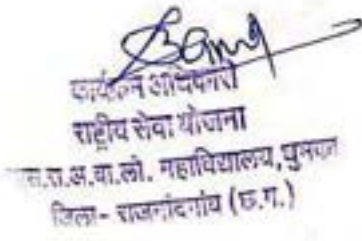 कार्यक्रम अधिकारी
राष्ट्रीय सेवा योजना
स.रा.अ.वा.लो. महाविद्यालय,
जिला- राजनांदगांव (छ.ग.)